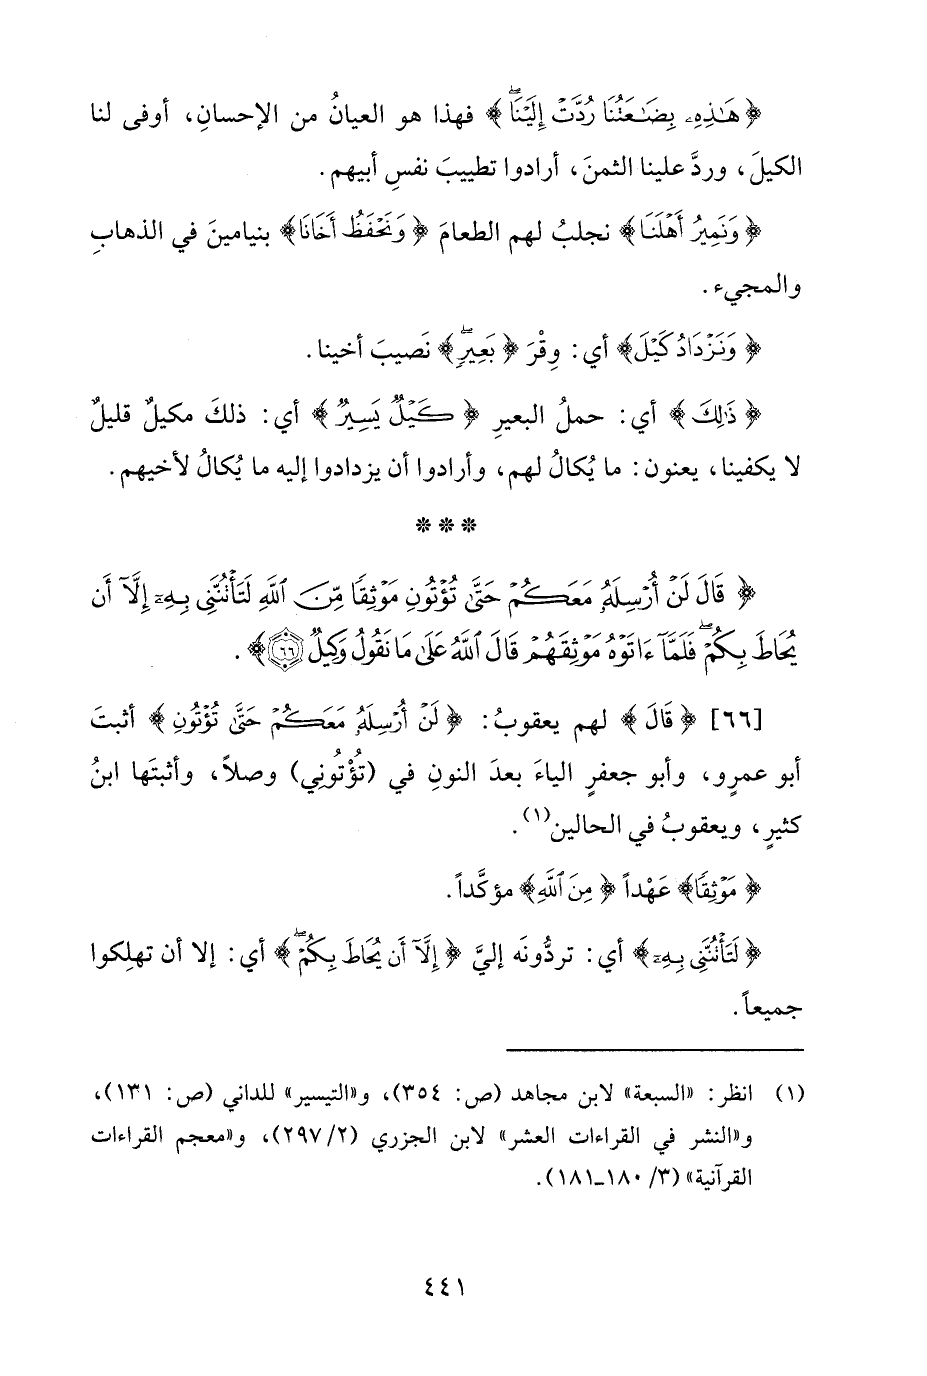 ﴿ هَٰذِهِۦ بِضَٰعَتُنَا رُدَّتْ إِلَيْنَاۖ ﴾ فهذا هو العيانُ من الإحسانِ، أوفى لنا
الكيلَ، وردَّ علينا الثمنَ، أرادوا تطييبَ نفسِ أبيهم.
﴿ وَنَمِيرُ أَهْلَنَا﴾ نجلبُ لهم الطعامَ ﴿ وَنَحْفَظُ أَخَانَا﴾ بنيامينَ في الذهابِ
والمجيء.
﴿ وَنَزْدَادُ كَيْلَ﴾ أي: وِقْرَ ﴿ بَعِيرٍۖ ﴾ نَصيبَ أخينا.
﴿ ذَٰلِكَ ﴾ أي: حملُ البعيرِ ﴿ كَيْلٌ يَسِيرٌ ﴾ أي: ذلكَ مكيلٌ قليلٌ
لا يكفينا، يعنون: ما يُكالُ لهم، وأرادوا أن يزدادوا إليه ما يُكالُ لأخيهم.
* * *
﴿ قَالَ لَنْ أُرْسِلَهُۥ مَعَكُمْ حَتَّىٰ تُؤْتُونِ مَوْثِقًا مِّنَ ٱللَّهِ لَتَأْتُنَّنِى بِهِۦٓ إِلَّآ أَن
يُحَاطَ بِكُمْۖ فَلَمَّآ ءَاتَوْهُ مَوْثِقَهُمْ قَالَ ٱللَّهُ عَلَىٰ مَا نَقُولُ وَكِيلٌ ٦٦ ﴾.
[٦٦] ﴿ قَالَ ﴾ لهم يعقوبُ: ﴿ لَنْ أُرْسِلَهُۥ مَعَكُمْ حَتَّىٰ تُؤْتُونِ ﴾ أثبتَ
أبو عمرٍو، وأبو جعفرٍ الياءَ بعدَ النونِ في (تُؤْتُونِي) وصلاً، وأثبتَها ابنُ
كثيرٍ، ويعقوبُ في الحالين(١).
﴿ مَوْثِقًا﴾ عَهْداً ﴿ مِنَ ٱللَّهِ﴾ مؤكَّداً.
﴿ لَتَأْتُنَّنِى بِهِۦٓ ﴾ أي: تردُّونَه إليَّ ﴿ إِلَّآ أَن يُحَاطَ بِكُمْۖ ﴾ أي: إلا أن تهلِكوا
جميعاً.
(١) انظر: «السبعة» لابن مجاهد (ص: ٣٥٤)، و«التيسير» للداني (ص: ١٣١)،
و«النشر في القراءات العشر» لابن الجزري (٢/ ٢٩٧)، و«معجم القراءات
القرآنية» (٣/ ١٨٠-١٨١).
٤٤١